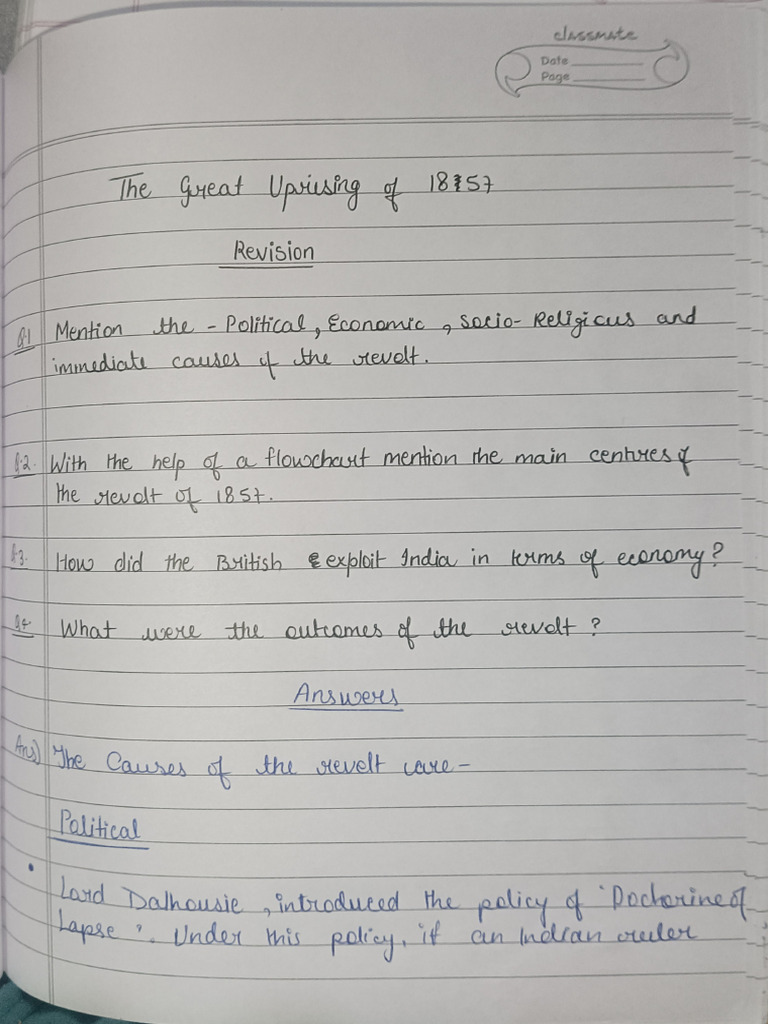 classmate
Date
Page
The Great Uprising of 1857
Revision
Q.1 Mention the - Political, Economic, Socio-Religious and
immediate causes of the revolt.
Q.2. With the help of a flowchart mention the main centres of
the revolt of 1857.
Q3. How did the British exploit India in terms of economy?
Q4. What were the outcomes of the revolt?
Answers
Ans) The Causes of the revolt are -
Political
• Lord Dalhousie, introduced the policy of 'Docterine of
Lapse'. Under this policy, if an Indian ruler